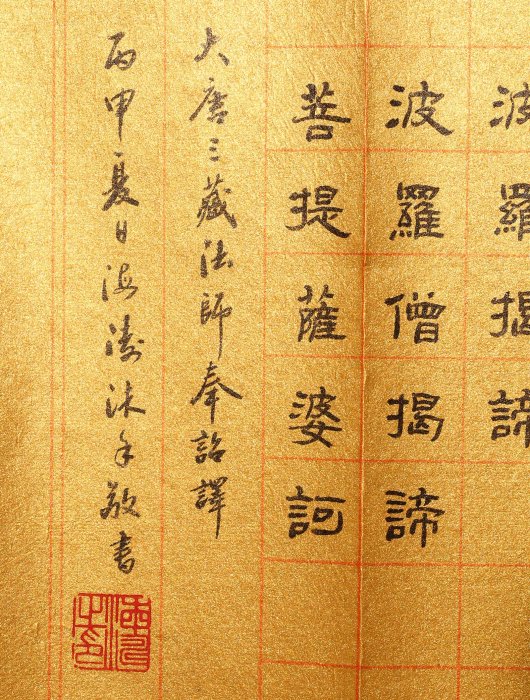 波羅揭諦
波羅僧揭諦
菩提薩婆訶
大唐三藏法師奉詔譯
丙申夏日海濤沐手敬書